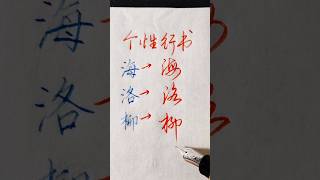 个性行书
海→海
洛→洛
柳→柳